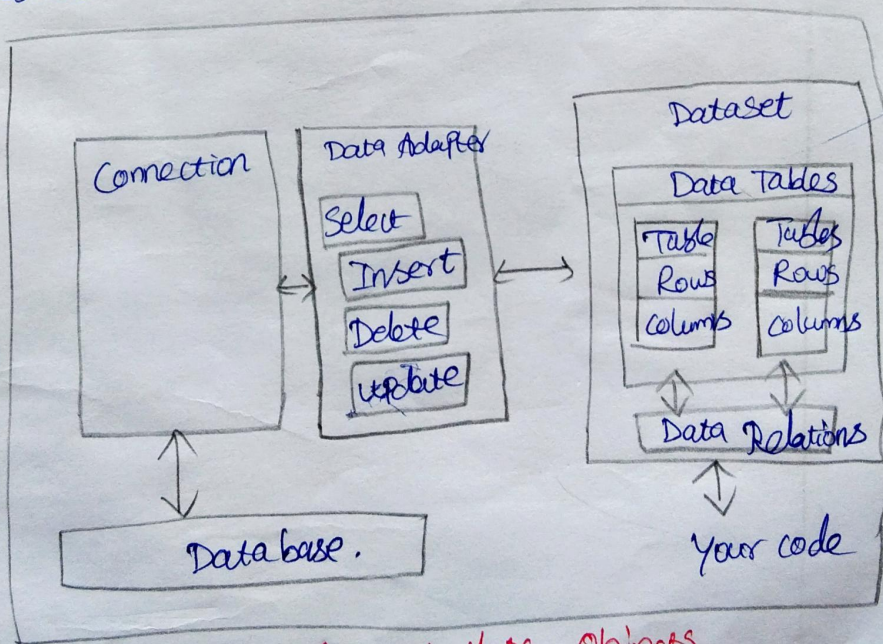 Connection
Data Adapter
Select
Insert
Delete
Update
Dataset
Data Tables
Table
Rows
Colums
Tables
Rows
Columns
Data Relations
Your code
Database.
Objects